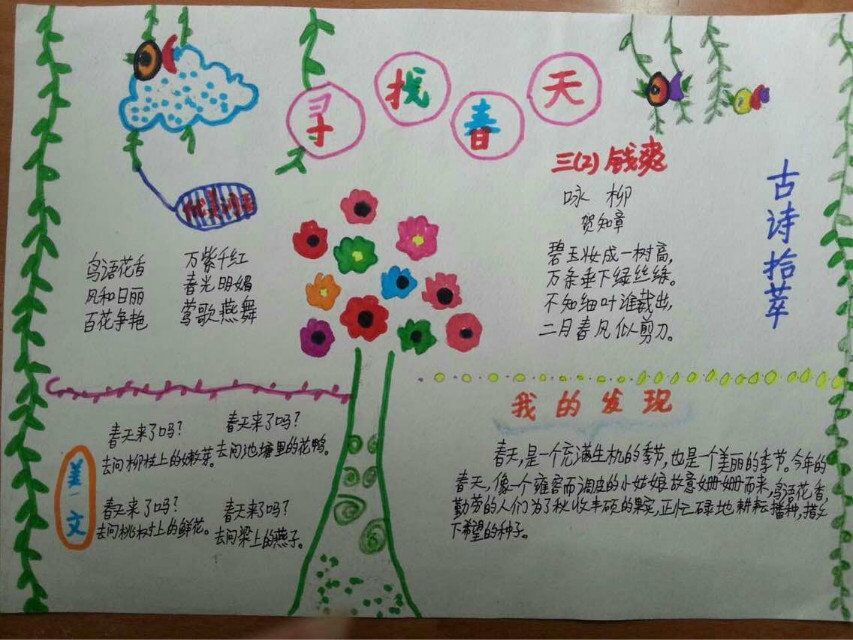 寻找春天
三(2) 钱爽
古诗拾萃
咏柳
贺知章
碧玉妆成一树高,
万条垂下绿丝绦。
不知细叶谁裁出,
二月春风似剪刀。
鸟语花香 万紫千红
风和日丽 春光明媚
百花争艳 莺歌燕舞
美文
春天来了吗? 春天来了吗?
去问柳枝上的嫩芽。去问池塘里的花鸭。
春天来了吗? 春天来了吗?
去问桃树上的鲜花。去问梁上的燕子。
我的发现
春天,是一个充满生机的季节,也是一个美丽的季节。今年的
春天,像一个雍容而调皮的小姑娘故意姗姗而来,鸟语花香,
勤劳的人们为了秋收丰硕的果实,正忙碌地耕耘播种,播
下希望的种子。